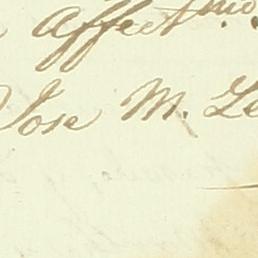 Affect.mo
Jose M. Le